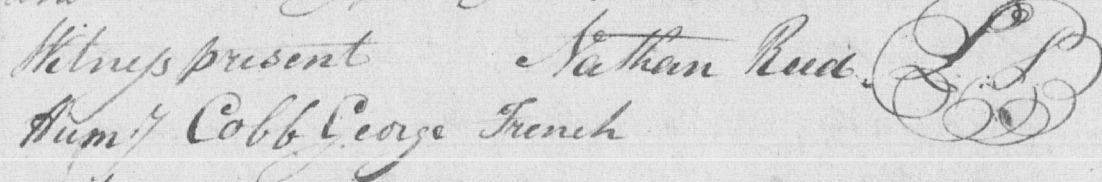 Witness present Nathan Reed. L. S
Humy Cobb George French